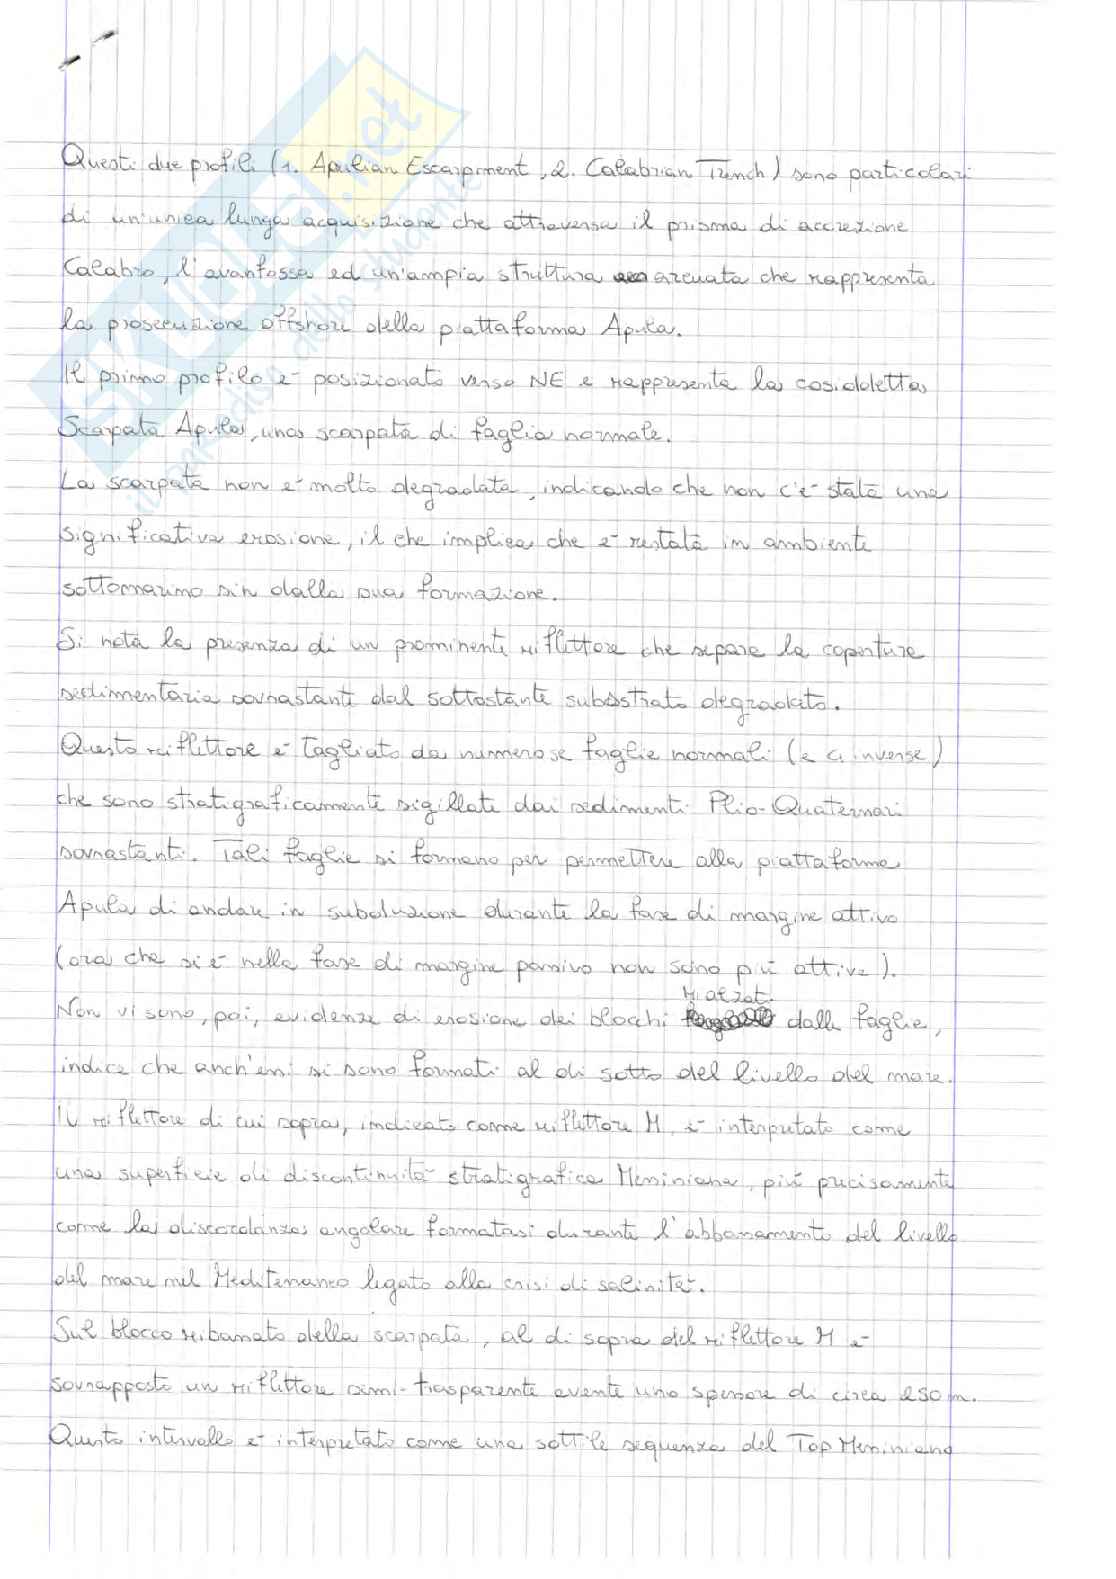 Questi due profili (1. Apulian Escarpment, 2. Calabrian Trench) sono particolari
di un'unica lunga acquisizione che attraversa il prisma di accrezione
Calabro, l'avanfossa ed un'ampia struttura arcuata che rappresenta
la prosecuzione offshore della piattaforma Apula.
Il primo profilo è posizionato verso NE e rappresenta la cosiddetta
Scarpata Apula, una scarpata di faglia normale.
La scarpata non è molto degradata, indicando che non c'è stata una
significativa erosione, il che implica che è restata in ambiente
sottomarino sin dalla sua formazione.
Si nota la presenza di un prominente riflettore che separa la copertura
sedimentaria sovrastante dal sottostante substrato degradato.
Questo riflettore è tagliato da numerose faglie normali (e inverse)
che sono stratigraficamente sigillate dai sedimenti Plio-Quaternari
sovrastanti. Tali faglie si formano per permettere alla piattaforma
Apula di andare in subduzione durante la fase di margine attivo
(ora che si è nella fase di margine passivo non sono più attive).
Non vi sono, poi, evidenze di erosione dei blocchi rialzati dalle faglie,
indice che anch'essi si sono formati al di sotto del livello del mare.
Il riflettore di cui sopra, indicato come riflettore M, è interpretato come
una superficie di discontinuità stratigrafica Messiniana, più precisamente
come la discordanza angolare formatasi durante l'abbassamento del livello
del mare nel Mediterraneo legato alla crisi di salinità.
Sul blocco ribassato della scarpata, al di sopra del riflettore M è
sovrapposto un riflettore semi-trasparente avente uno spessore di circa 250 m.
Questo intervallo è interpretato come una sottile sequenza del Top Messiniano
SKUOLA.net
il paradiso dello studente